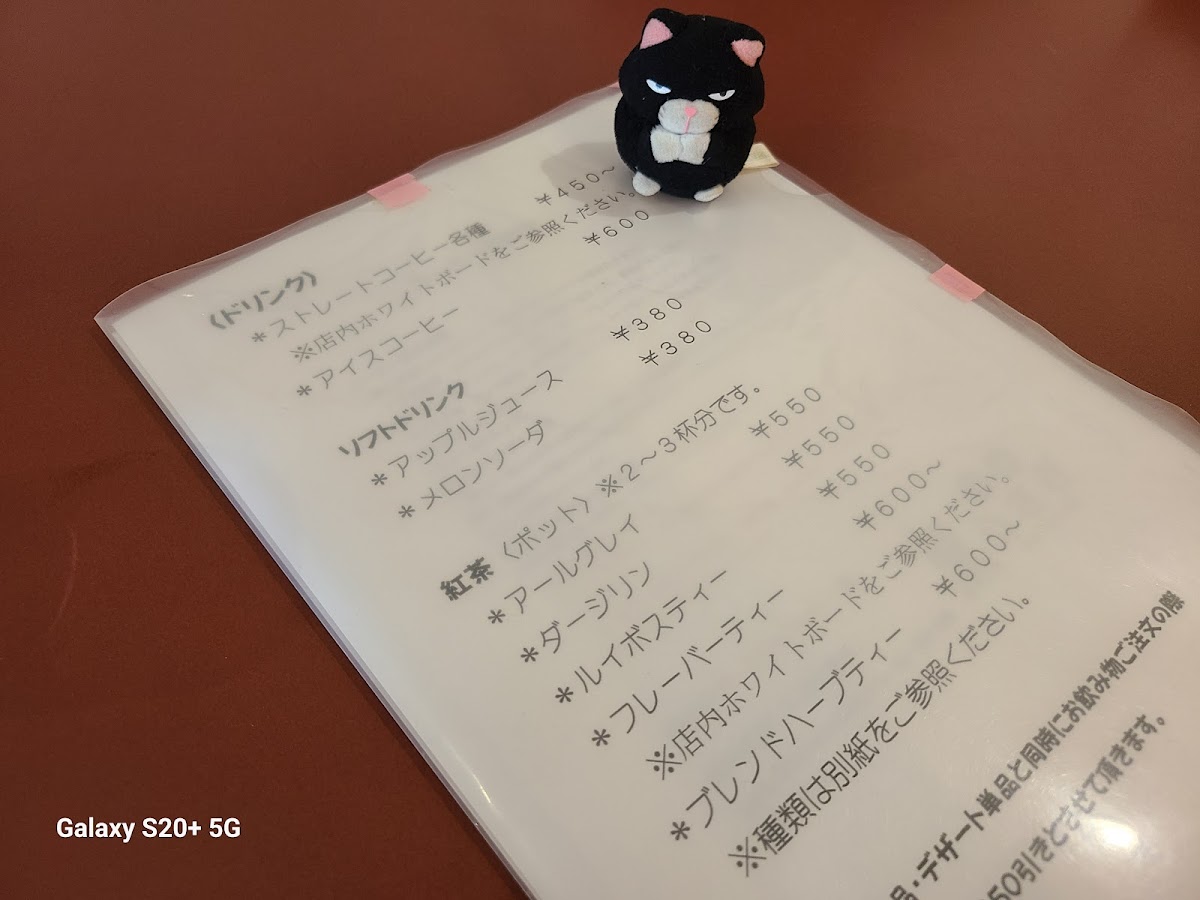 〈ドリンク〉
＊ストレートコーヒー各種 ￥４５０～
※店内ホワイトボードをご参照ください。
＊アイスコーヒー ￥６００
ソフトドリンク
＊アップルジュース ￥３８０
＊メロンソーダ ￥３８０
紅茶〈ポット〉※２～３杯分です。
＊アールグレイ ￥５５０
＊ダージリン ￥５５０
＊ルイボスティー ￥５５０
＊フレーバーティー ￥６００～
※店内ホワイトボードをご参照ください。
＊ブレンドハーブティー ￥６００～
※種類は別紙をご参照ください。
品・デザート単品と同時にお飲み物ご注文の際
50引きとさせて頂きます。
Galaxy S20+ 5G